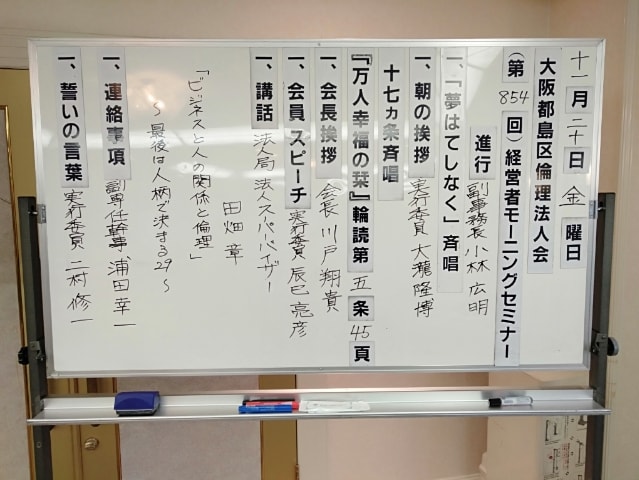 十一月二十日金曜日
大阪都島区倫理法人会
(第854回)経営者モーニングセミナー
進行 副事務長 小林広明
一、「夢はてしなく」斉唱
一、朝の挨拶 実行委員 大瀧隆博
十七ヵ条斉唱
『万人幸福の栞』輪読第五条45頁
一、会長挨拶 会長 川戸翔貴
一、会員スピーチ 実行委員 辰巳亮彦
一、講話 法人局 法人スーパーバイザー
田畑章
「ビジネスと人の関係と倫理」
〜最後は人柄で決まる29〜
一、連絡事項 副専任幹事 浦田幸一
一、誓いの言葉 実行委員 二村修一